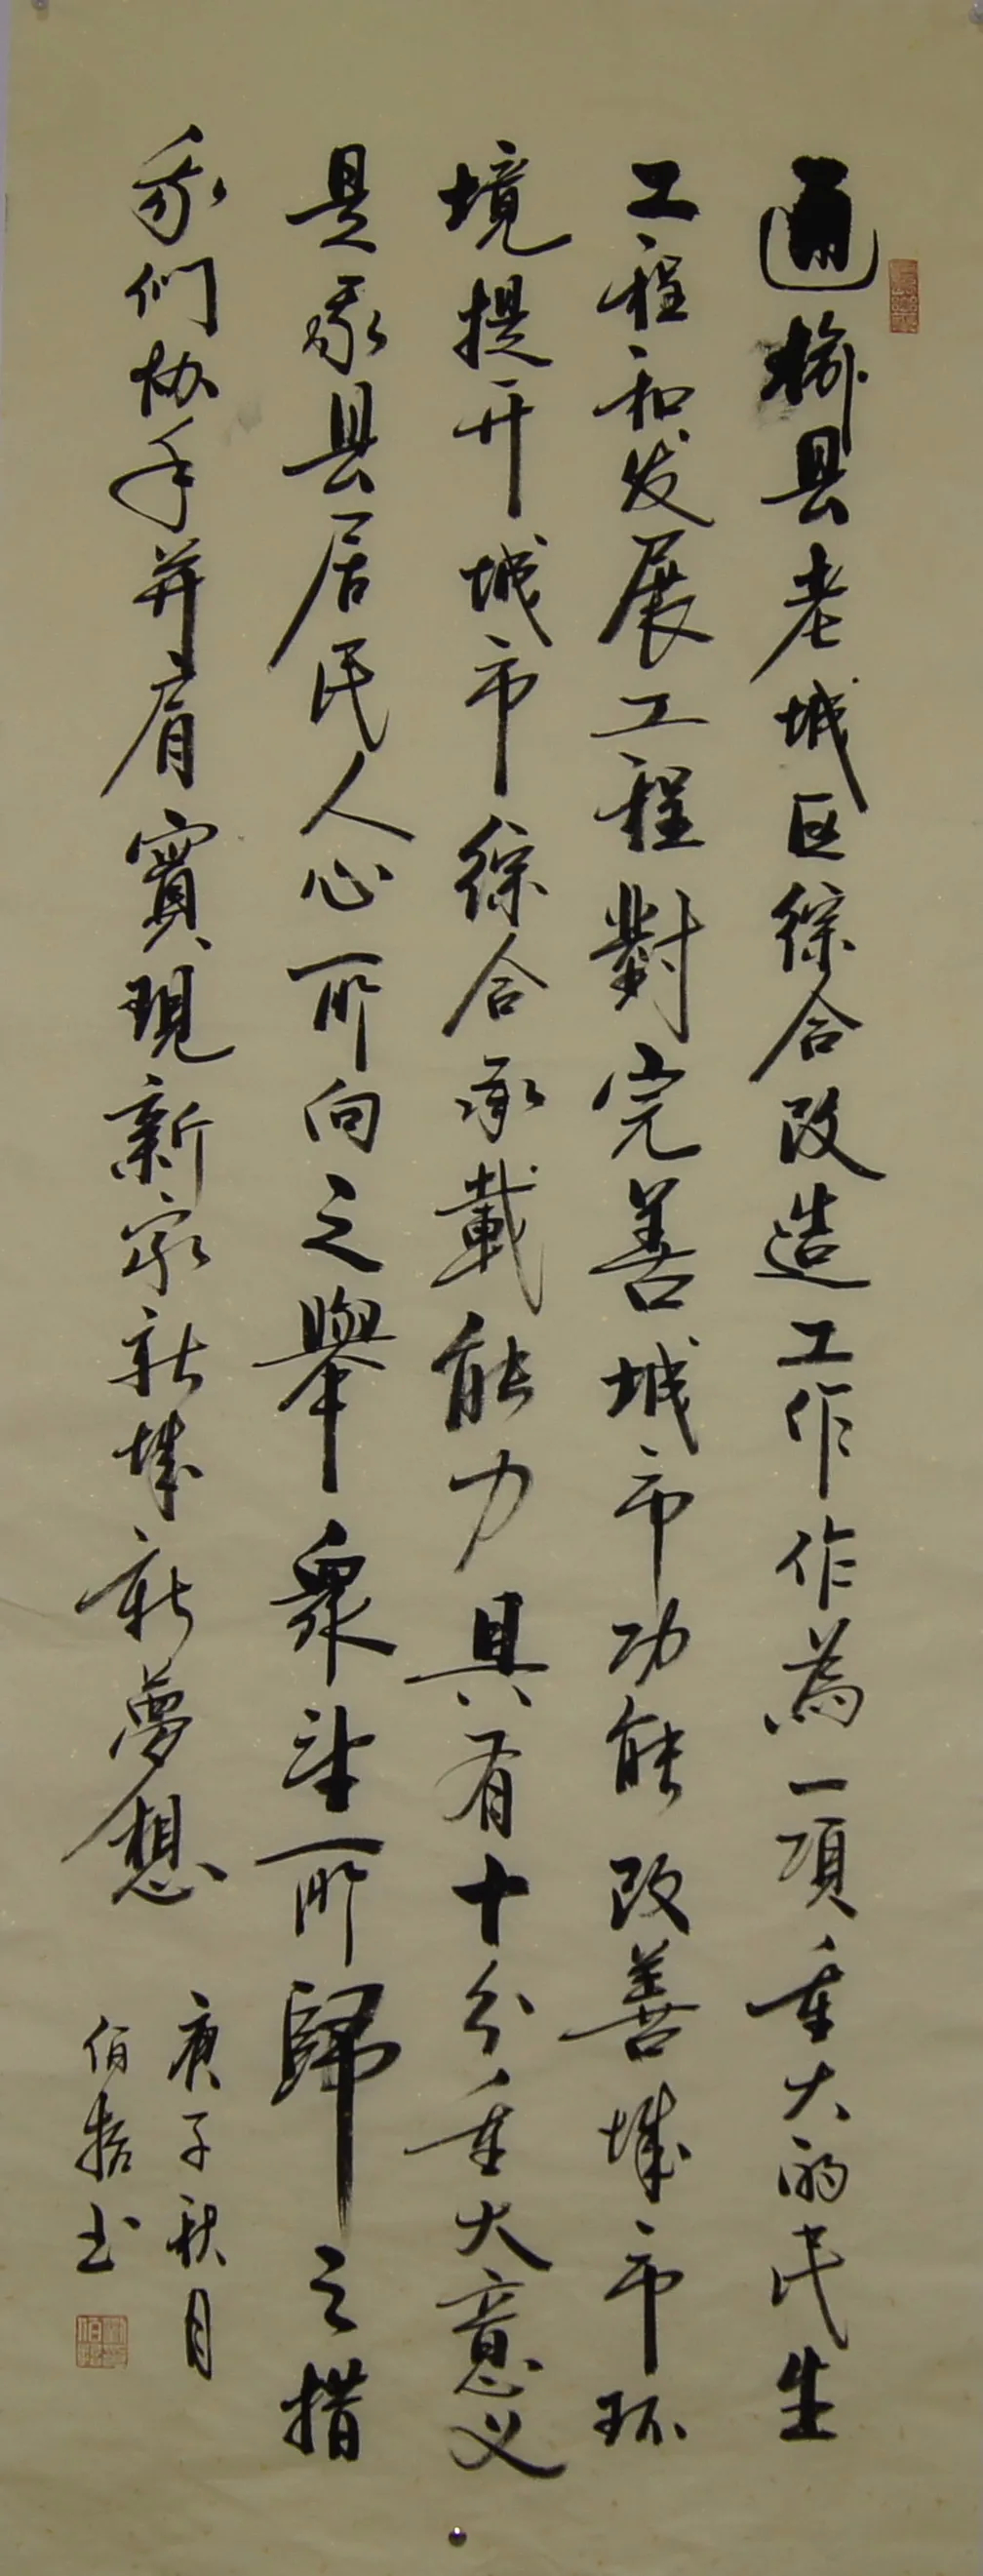 通榆县老城区综合改造工作作為一项重大的民生
工程和发展工程對完善城市功能改善城市环
境提升城市综合承載能力具有十分重大意义
是我县居民人心所向之舉眾望所歸之措
我们协手并肩實現新家新城新夢想
庚子秋月
伯哲书